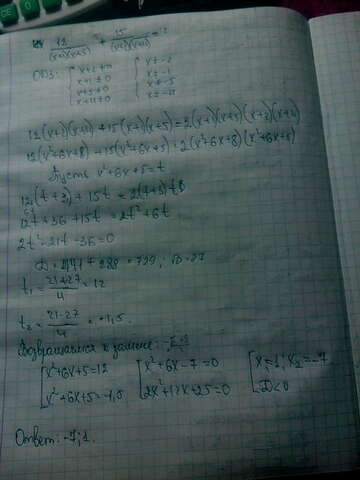 12/(x+1)(x+5) + 15/(x+2)(x+4) = 2
ОДЗ: { x+2≠0 { x≠-2
x+1≠0 x≠-1
x+5≠0 x≠-5
12(x+2)(x+4)+15(x+1)(x+5)=2(x+1)(x+5)(x+2)(x+4)
12(x²+6x+8)+15(x²+6x+5)=2(x²+6x+8)(x²+6x+5)
Пусть x²+6x+5=t
12(t+3)+15t=2(t+3)t
12t+36+15t=2t²+6t
2t²-21t-36=0
D=441+288=729; D=27
t₁=21+27/4=12
t₂=21-27/4=-1,5
Возвращаемся к замене:
[x²+6x+5=12 [x²+6x-7=0 [x₁=1; x₂=-7
x²+6x+5=-1,5 2x²+12x+25=0 D<0
Ответ: -7; 1.